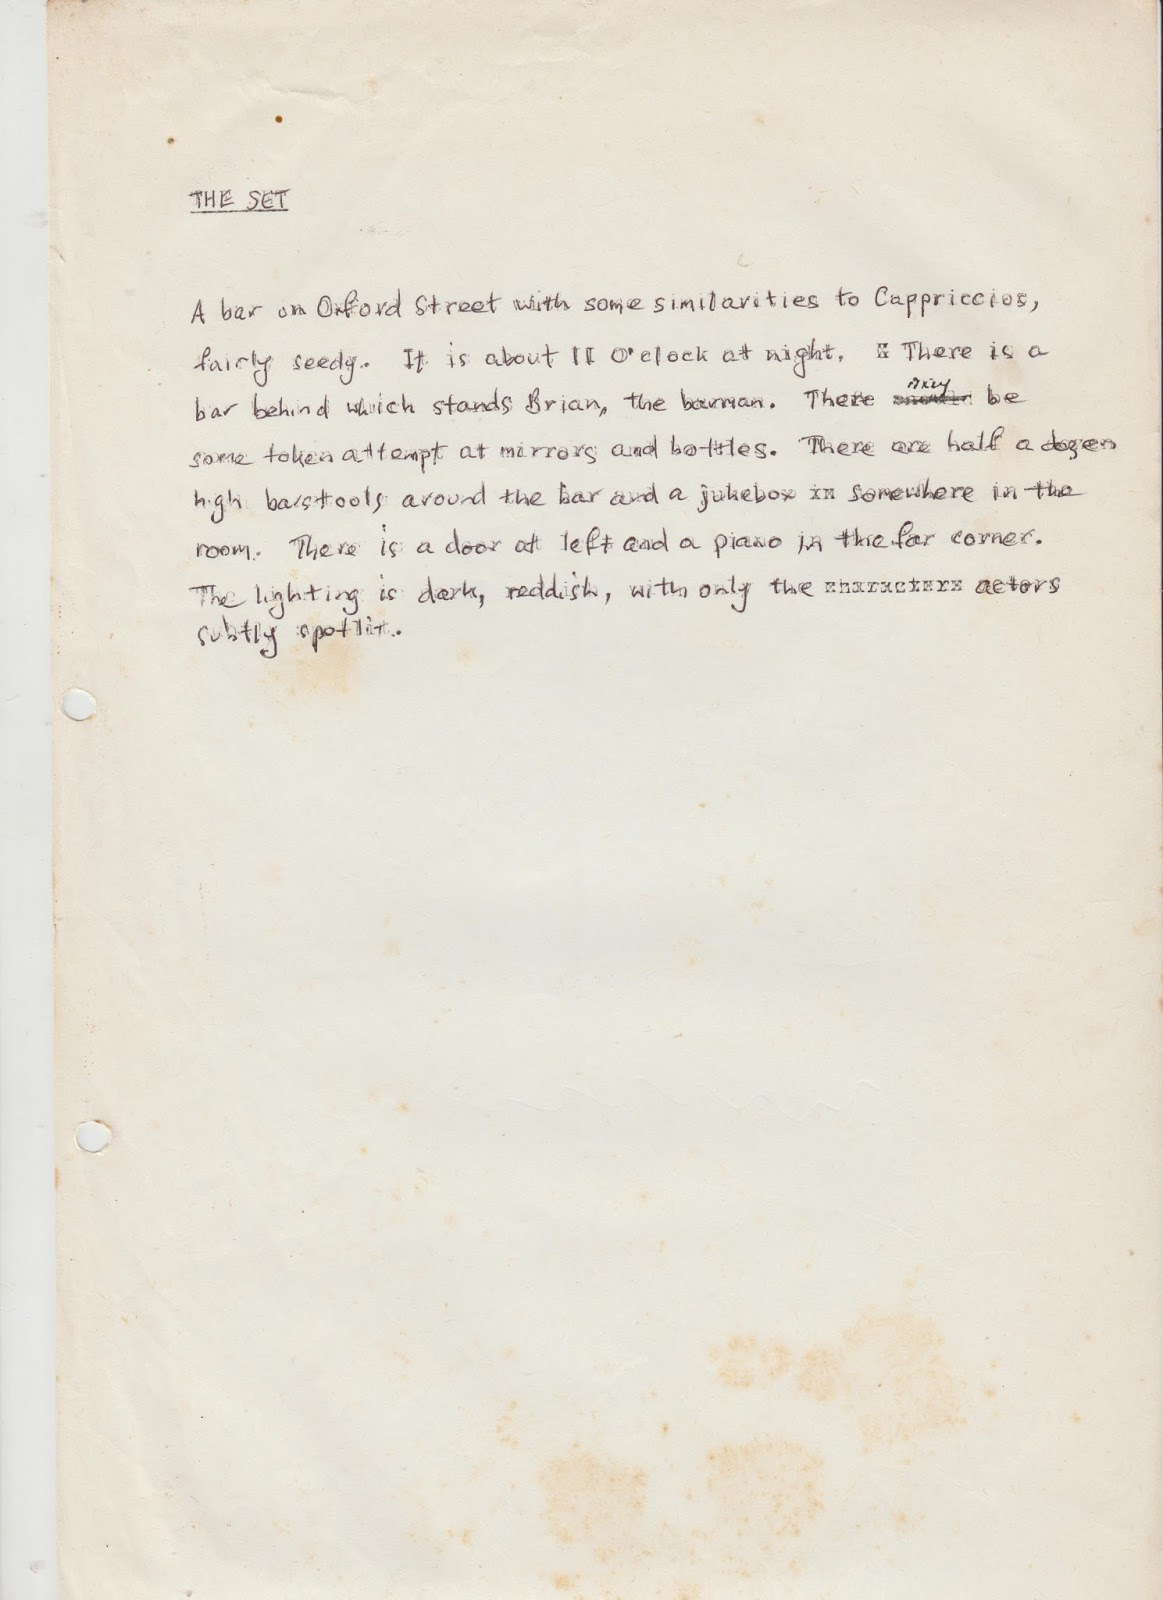 THE SET
A bar on Oxford Street with some similarities to Cappriccios,
fairly seedy. It is about 11 O'clock at night. There is a
bar behind which stands Brian, the barman. There may be
some token attempt at mirrors and bottles. There are half a dozen
high barstools around the bar and a jukebox in somewhere in the
room. There is a door at left and a piano in the far corner.
The lighting is dark, reddish, with only the characters actors
subtly spotlit.